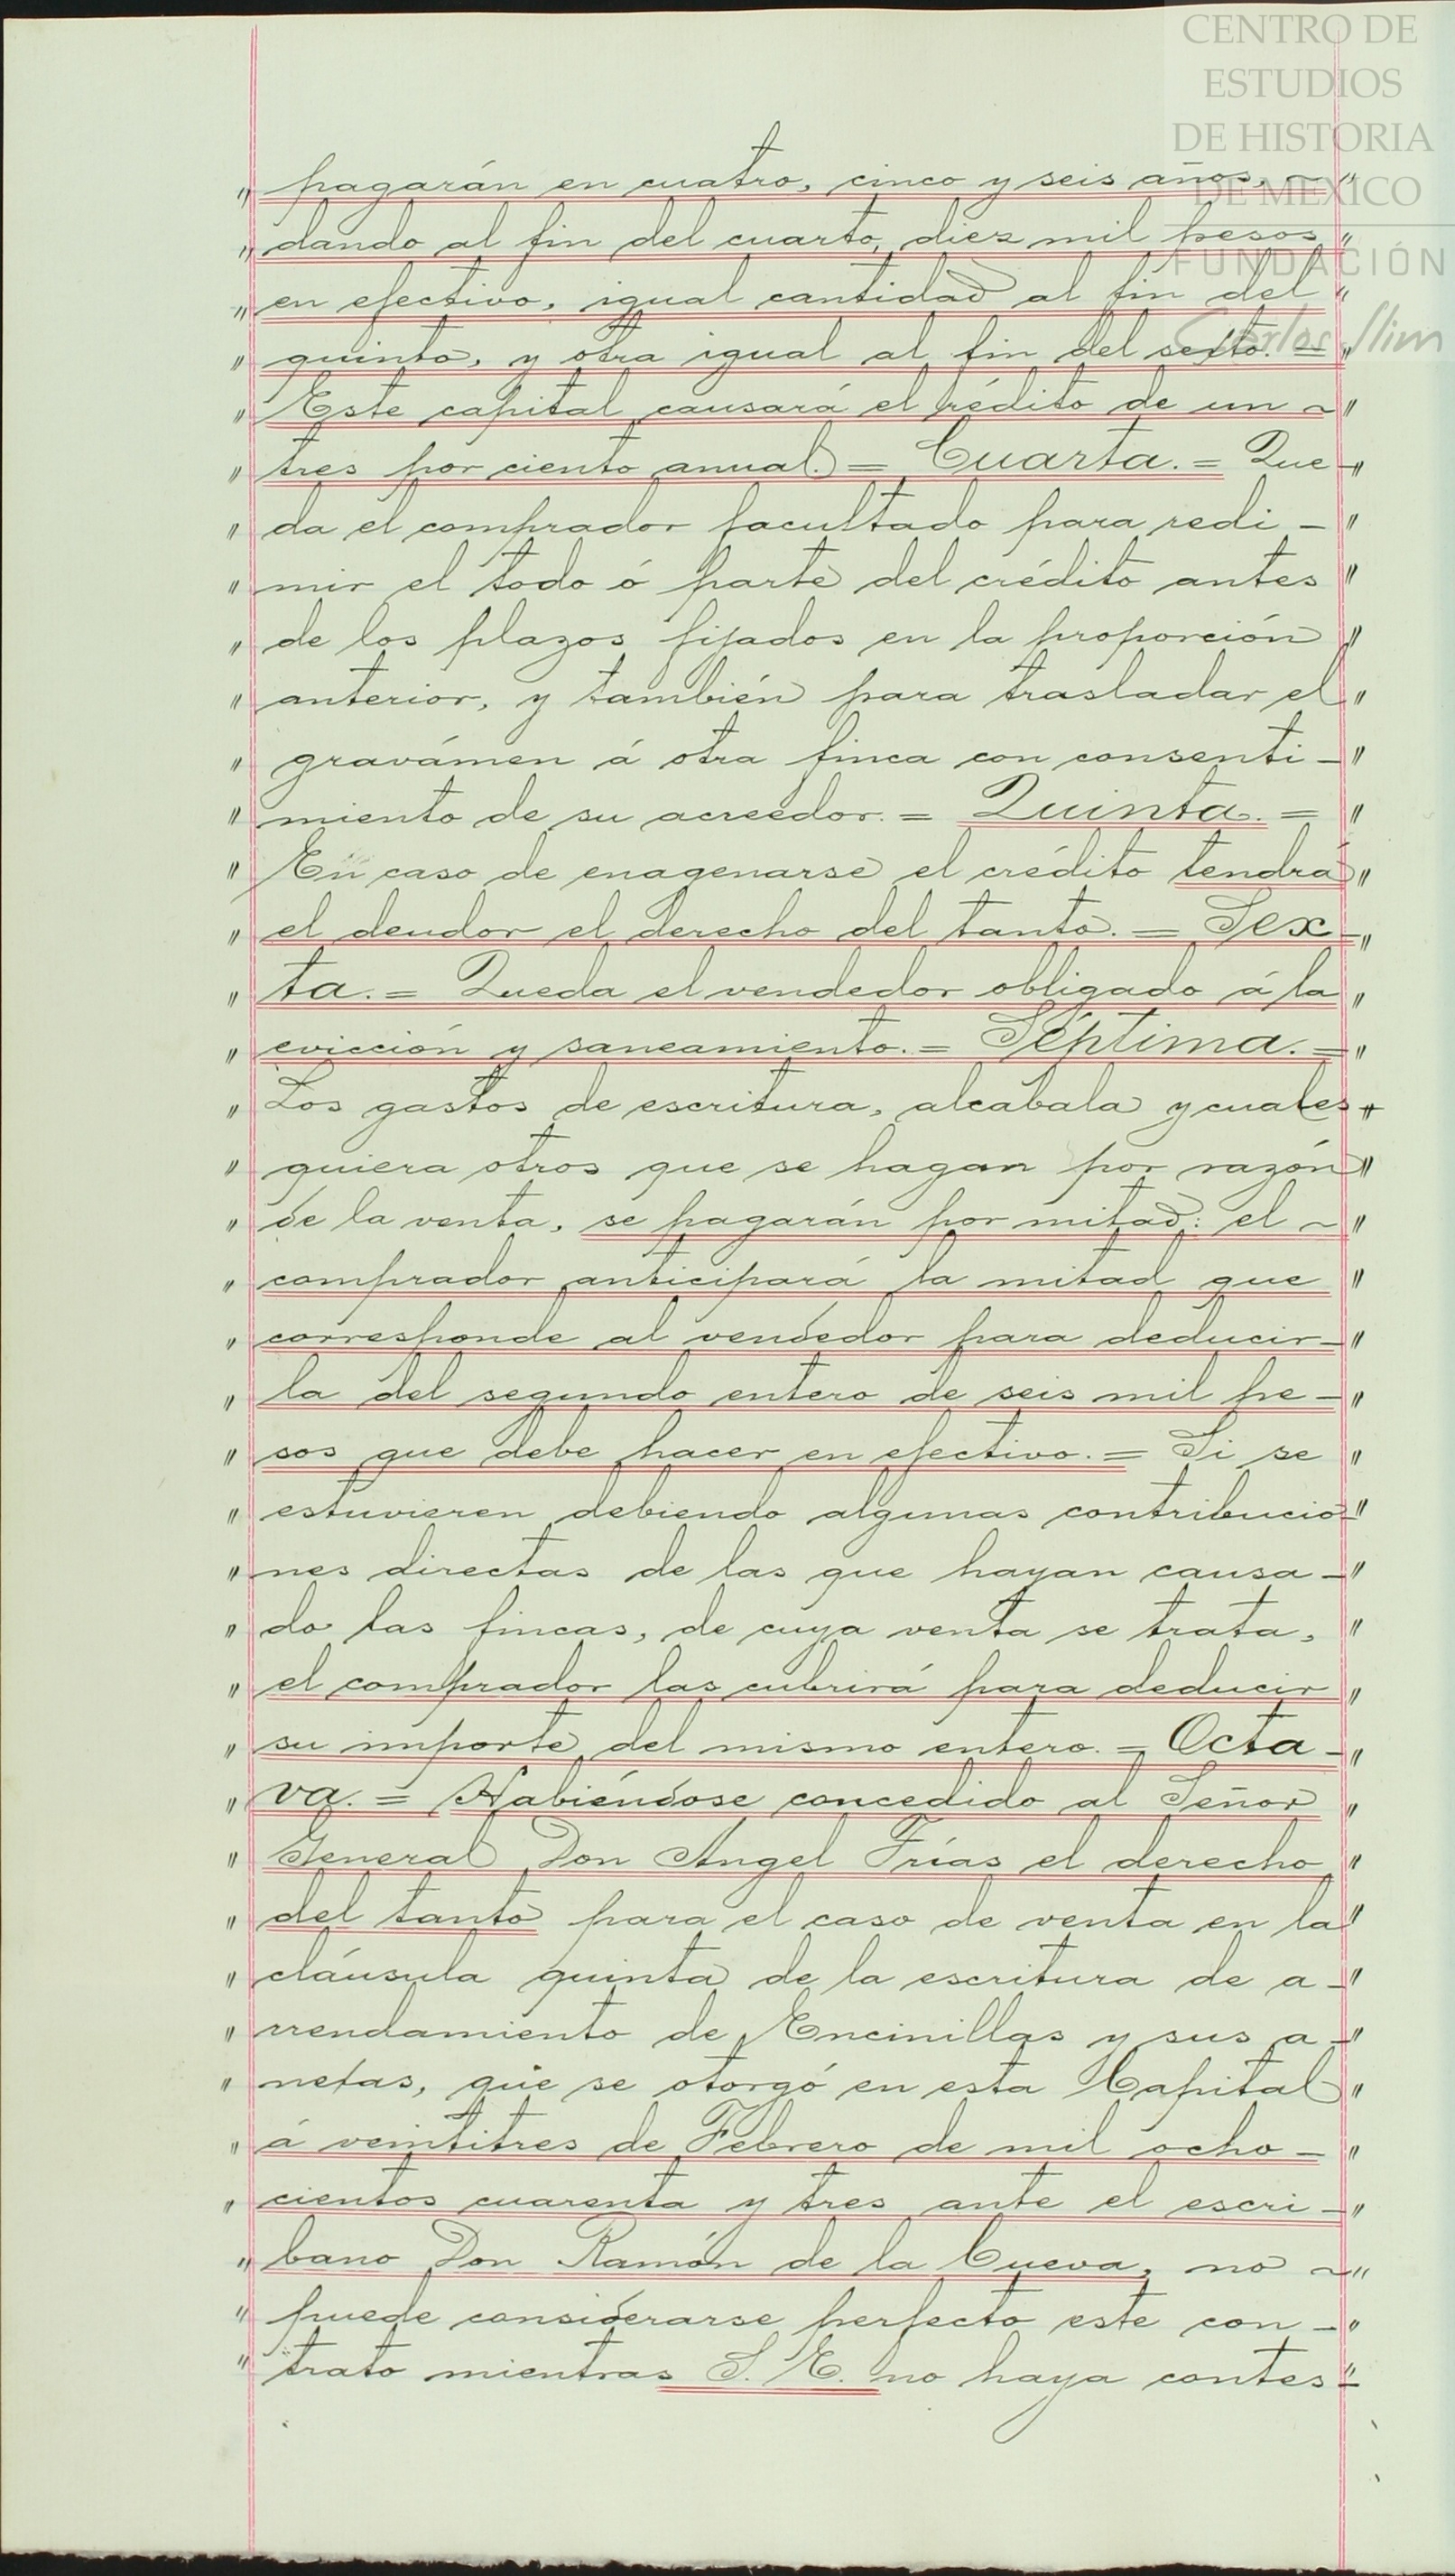 CENTRO DE
ESTUDIOS
DE HISTORIA
DE MÉXICO
FUNDACIÓN
Carlos Slim
" pagarán en cuatro, cinco y seis años, ~ "
" dando al fin del cuarto, diez mil pesos "
" en efectivo, igual cantidad al fin del "
" quinto, y otra igual al fin del sexto. = "
" Este capital causará el rédito de un ~ "
" tres por ciento anual. = Cuarta. = Que - "
" da el comprador facultado para redi - "
" mir el todo ó parte del crédito antes "
" de los plazos fijados en la proporción "
" anterior, y también para trasladar el "
" gravámen á otra finca con consenti - "
" miento de su acreedor. = Quinta. = "
" En caso de enagenarse el crédito tendrá "
" el deudor el derecho del tanto. = Sex - "
" ta. = Queda el vendedor obligado á la "
" evicción y saneamiento. = Séptima. = "
" Los gastos de escritura, alcabala y cuales - "
" quiera otros que se hagan por razón "
" de la venta, se pagarán por mitad: el ~ "
" comprador anticipará la mitad que "
" corresponde al vendedor para deducir - "
" la del segundo entero de seis mil pe - "
" sos que debe hacer en efectivo. = Si se "
" estuvieren debiendo algunas contribucio - "
" nes directas de las que hayan causa - "
" do las fincas, de cuya venta se trata, "
" el comprador las cubrirá para deducir "
" su importe del mismo entero. = Octa - "
" va. = Habiéndose concedido al Señor "
" General Don Angel Frías el derecho "
" del tanto para el caso de venta en la "
" cláusula quinta de la escritura de a - "
" rrendamiento de Encinillas y sus a - "
" nexas, que se otorgó en esta Capital "
" á veintitres de Febrero de mil ocho - "
" cientos cuarenta y tres ante el escri - "
" bano Don Ramón de la Cueva, no ~ "
" puede considerarse perfecto este con - "
" trato mientras S. E. no haya contes - "